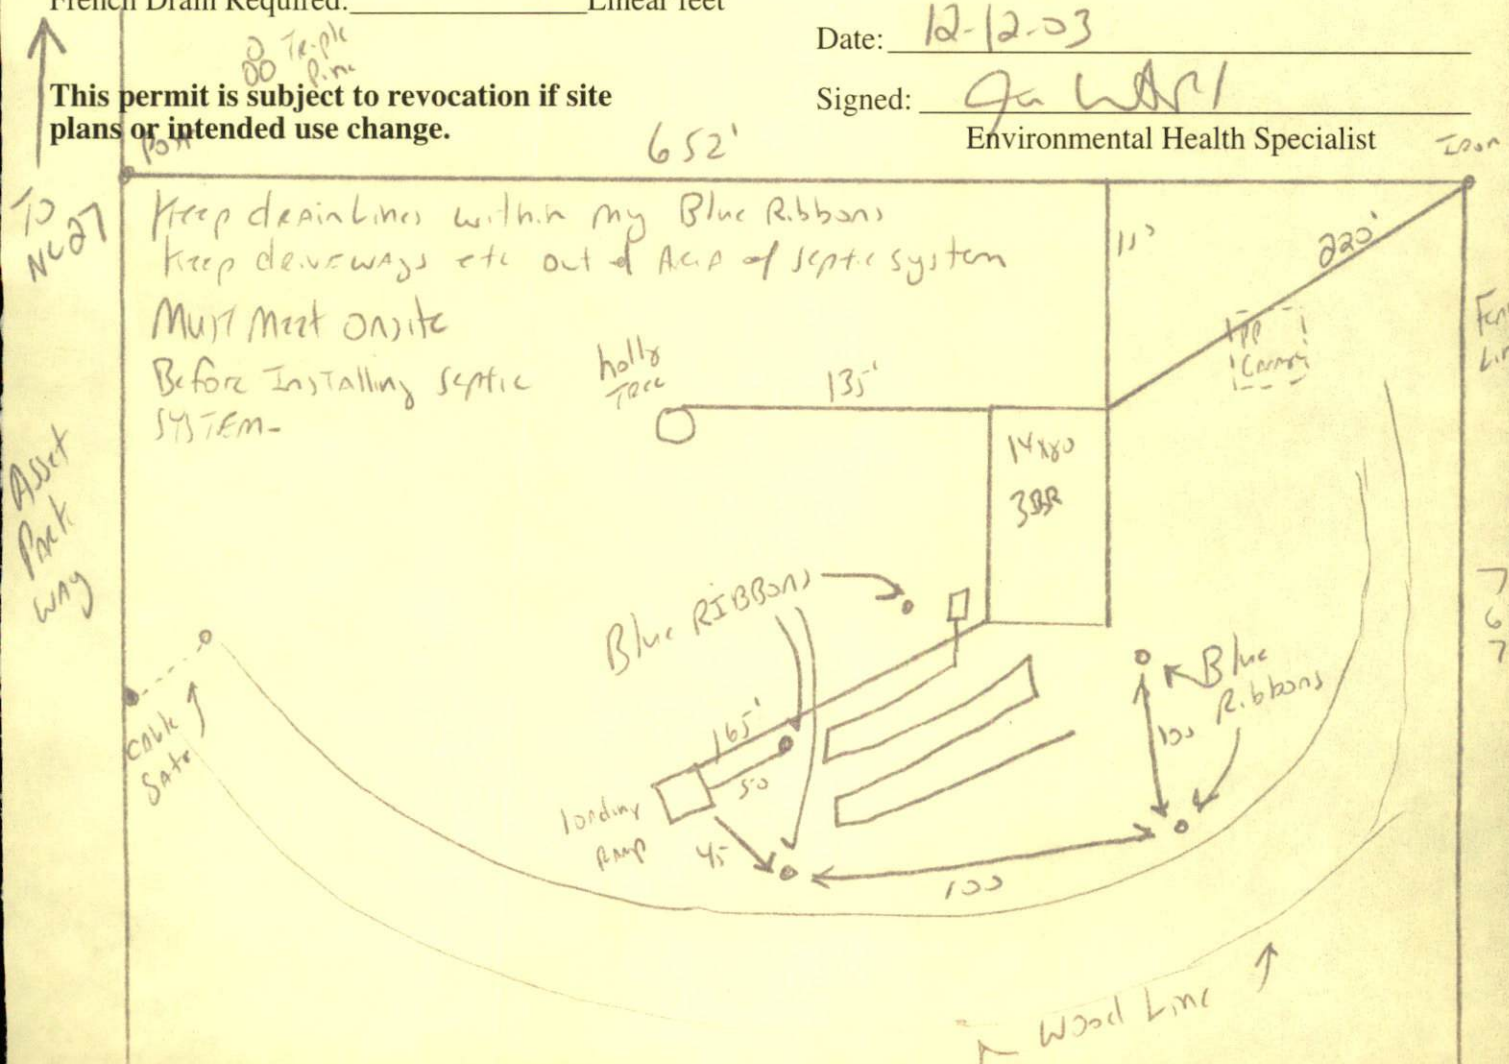 French Drain Required: Linear feet
Date: 12-12-03
Triple
Pine
This permit is subject to revocation if site
plans or intended use change.
Signed:
Environmental Health Specialist
652'
Iron
To
NC27
Keep drainlines within my Blue Ribbons
Keep driveways etc out of Area of septic system
Must Meet Onsite
Before Installing Septic
SYSTEM-
220'
holly
Tree
135'
PP
14x80
3BR
Asset
Park
way
767
Blue RIBBONS
Blue
Ribbons
100
cable
Gate
165'
50
loading
ramp
45
100
Wood Line